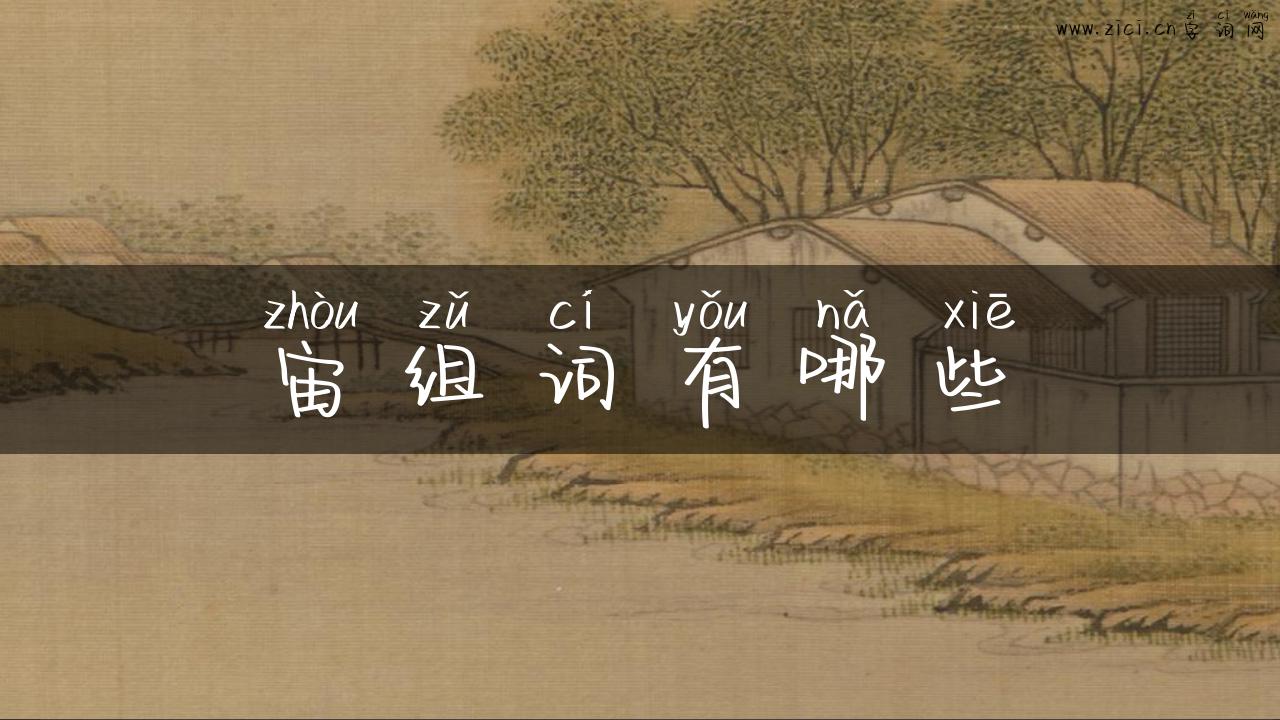 zì cí wǎng
www.zici.cn 字词网
zhòu zǔ cí yǒu nǎ xiē
宙组词有哪些